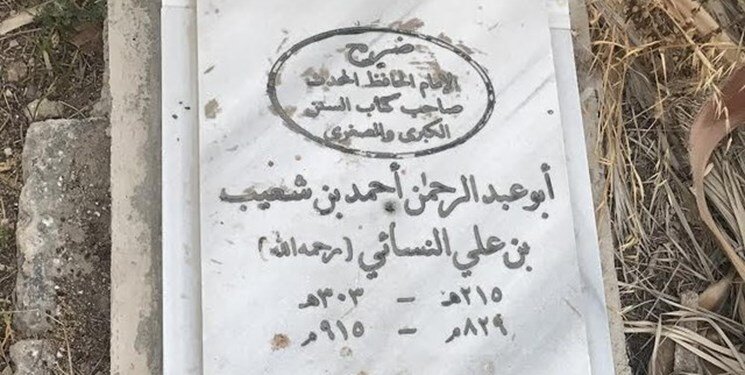 ضريح
الإمام الحافظ المحدث
صاحب كتاب السنن
الكبرى والصغرى
أبو عبد الرحمن أحمد بن شعيب
بن علي النسائي (رحمه الله)
٢١٥هـ - ٣٠٣هـ
٨٢٩م - ٩١٥م